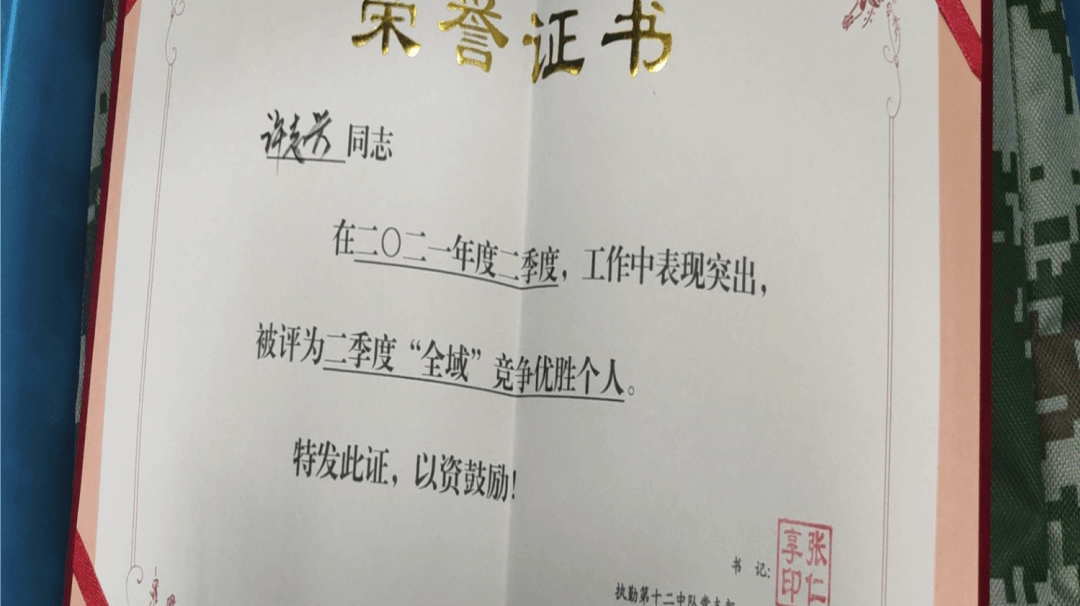 荣誉证书
许志兴 同志
在二〇二一年度二季度，工作中表现突出，
被评为二季度“全域”竞争优胜个人。
特发此证，以资鼓励！
书 记：
张仁享印
执勤第十二中队党支部